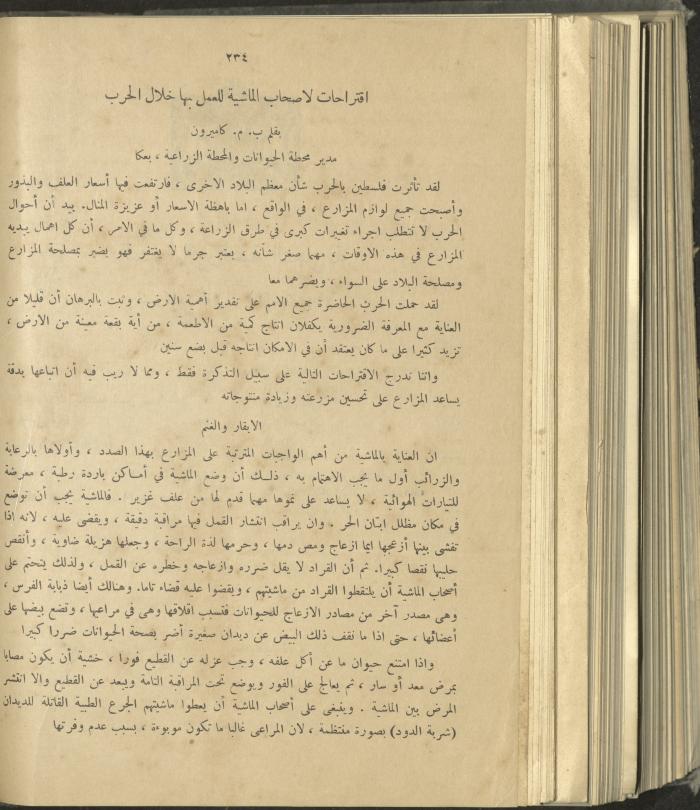 ٢٣٤
اقتراحات لاصحاب الماشية للعمل بها خلال الحرب
بقلم ب. م. كاميرون
مدير محطة الحيوانات والمحطة الزراعية ، بعكا
لقد تأثرت فلسطين بالحرب شأن معظم البلاد الاخرى ، فارتفعت فيها أسعار العلف والبذور
وأصبحت جميع لوازم المزارع ، في الواقع ، اما باهظة الاسعار أو عزيزة المنال. بيد أن أحوال
الحرب لا تتطلب اجراء تغييرات كبرى في طرق الزراعة ، وكل ما في الامر ، أن كل اهمال يبديه
المزارع في هذه الاوقات ، مهما صغر شأنه ، يعتبر جرما لا يغتفر فهو يضر بمصلحة المزارع
ومصلحة البلاد على السواء ، ويضرهما معا
لقد حملت الحرب الحاضرة جميع الامم على تقدير أهمية الارض ، وثبت بالبرهان أن قليلا من
العناية مع المعرفة الضرورية يكفلان انتاج كمية من الاطعمة ، من أية بقعة معينة من الارض ،
تزيد كثيرا على ما كان يعتقد أن في الامكان انتاجه قبل بضع سنين
واننا ندرج الاقتراحات التالية على سبيل التذكرة فقط ، ومما لا ريب فيه أن اتباعها بدقة
يساعد المزارع على تحسين مزرعته وزيادة منتوجاته
الابقار والغنم
ان العناية بالماشية من أهم الواجبات المترتبة على المزارع بهذا الصدد ، وأولاها بالرعاية
والزرائب أول ما يجب الاهتمام به ، ذلك أن وضع الماشية في أماكن باردة رطبة ، معرضة
للتيارات الهوائية ، لا يساعد على نموها مهما قدم لها من علف غزير . فالماشية يجب أن توضع
في مكان مظلل ابان الحر . وان يراقب انتشار القمل فيها مراقبة دقيقة ، ويقضى عليه ، لانه اذا
تفشى بينها أزعجها ايما ازعاج ومص دمها ، وحرمها لذة الراحة ، وجعلها هزيلة ضاوية ، وأنقص
حليبها نقصا كبيرا. ثم أن القراد لا يقل ضرره وازعاجه وخطره عن القمل ، ولذلك يتحتم على
أصحاب الماشية أن يلتقطوا القراد من ماشيتهم ، ويقضوا عليه قضاء تاما. وهنالك أيضا ذبابة الفرس ،
وهى مصدر آخر من مصادر الازعاج للحيوانات فتسبب اقلاقها وهى في مراعيها ، وتضع بيضها على
أعضائها ، حتى اذا ما نقف ذلك البيض عن ديدان صغيرة أضر بصحة الحيوانات ضررا كبيرا
واذا امتنع حيوان ما عن أكل علفه ، وجب عزله عن القطيع فورا ، خشية أن يكون مصابا
بمرض معد أو سار ، ثم يعالج على الفور ويوضع تحت المراقبة التامة ويبعد عن القطيع والا انتشر
المرض بين الماشية . وينبغي على أصحاب الماشية أن يعطوا ماشيتهم الجرع الطبية القاتلة للديدان
(شربة الدود) بصورة منتظمة ، لان المراعى غالبا ما تكون موبوءة ، بسبب عدم وفرتها